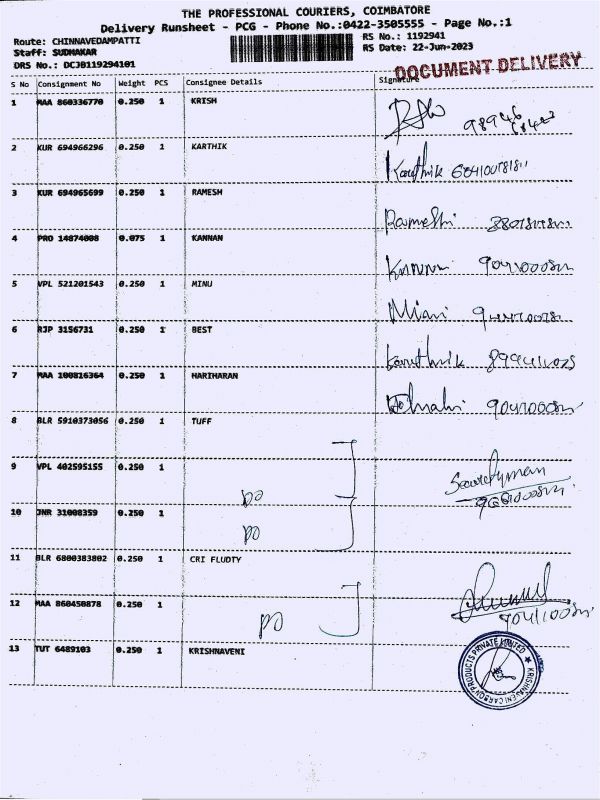 THE PROFESSIONAL COURIERS, COIMBATORE
Delivery Runsheet - PCG - Phone No.:0422-3505555 - Page No.:1
Route: CHINNAVEDAMPATTI
Staff: SUDHAKAR
DRS No.: DCJB119294101
RS No.: 1192941
RS Date: 22-Jun-2023
DOCUMENT DELIVERY
S No Consignment No Weight PCS Consignee Details Signature
1 MAA 860336770 0.250 1 KRISH
2 KUR 694966296 0.250 1 KARTHIK Karthik
3 KUR 694965699 0.250 1 RAMESH Ramesh
4 PRO 14874008 0.075 1 KANNAN Kannan
5 VPL 521201543 0.250 1 MINU
6 RJP 3156731 0.250 1 BEST Karthik
7 MAA 100816364 0.250 1 HARIHARAN
8 BLR 5910373056 0.250 1 TUFF
9 VPL 402595155 0.250 1 DO
10 JNR 31008359 0.250 1 DO
11 BLR 6800383802 0.250 1 CRI FLUDTY
12 MAA 860450878 0.250 1 DO
13 TUT 6489103 0.250 1 KRISHNAVENI
KRISHNAVENI CARBON PRODUCTS PRIVATE LIMITED